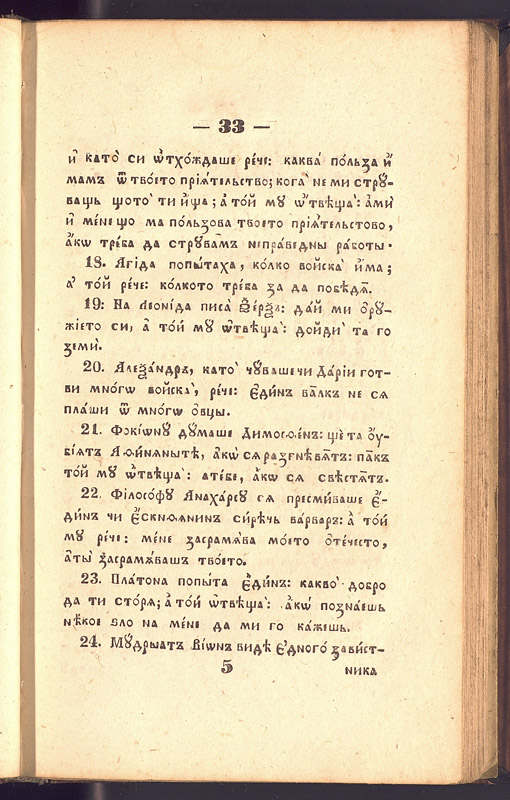 — 33 —
и҆ като̀ си ѿтхо́ждаше ре́че: каква̀ по́льза и҆
мамъ ѿ твое́то прїѧ́телство; кога̀ не ми стрꙋ́-
вашь щото̀ ти и҆ща; а҆ то́й мꙋ ѿвѣ́ща: а҆ми́
и҆ ме́не що ма по́льзова твоето прїѧ́телстово,
а҆кѡ тре́ба да стрꙋ́вамъ непра́ведны ра́боты.
18. Ягі́да попы́таха, ко́лко войска̀ и҆́ма;
а҆ то́й рече: ко́лкото тре́ба за да побѣдѧ̀.
19: На Леоні́да писа̀ Ѯе́рѯъ: да́й ми о҆рꙋ́-
жїето си, а҆ то́й мꙋ ѿвѣ́ща: дойдѝ та го
земѝ.
20. Але́ѯа́ндръ, като̀ чꙋ́ваше чи Да́рїи гот-
ви мно́гѡ войска̀, рече: є҆ди́нъ ва́лкъ не сѧ
пла́ши ѿ мно́гѡ о҆вцы.
21. Фокїѡнꙋ дꙋ́маше Димосѳе́нъ: ще та оу҆-
бі́ятъ Аѳинѧныте́, а҆кѡ сѧразгнѣвѧ́тъ: па́къ
то́й мꙋ ѿвѣ́ща: ате́бе, а҆кѡ сѧ свѣстѧ́тъ.
22. Фїлосо́фꙋ Анаха́рсꙋ сѧ пресми́ваше є҆-
ди́нъ чи є҆скнѳѧнинъ си́рѣчь ва́рваръ: а҆ то́й
мꙋ рече: ме́не засрамѧ́ва мо́ето оте́често,
а҆ты̀ засрамѧ́вашъ тво́ето.
23. Пла́тона попы́та є҆ди́нъ: какво̀ добро
да ти сто́рѧ; а҆ то́й ѿвѣща̀: а҆кѡ̀ позна́ешь
нѣ́кое ѕло на ме́не да ми го ка́жешь.
24. Мꙋ́дрыатъ Вїѡ́нъ видѣ̀ є҆дного̀ зави́ст-
5 ника